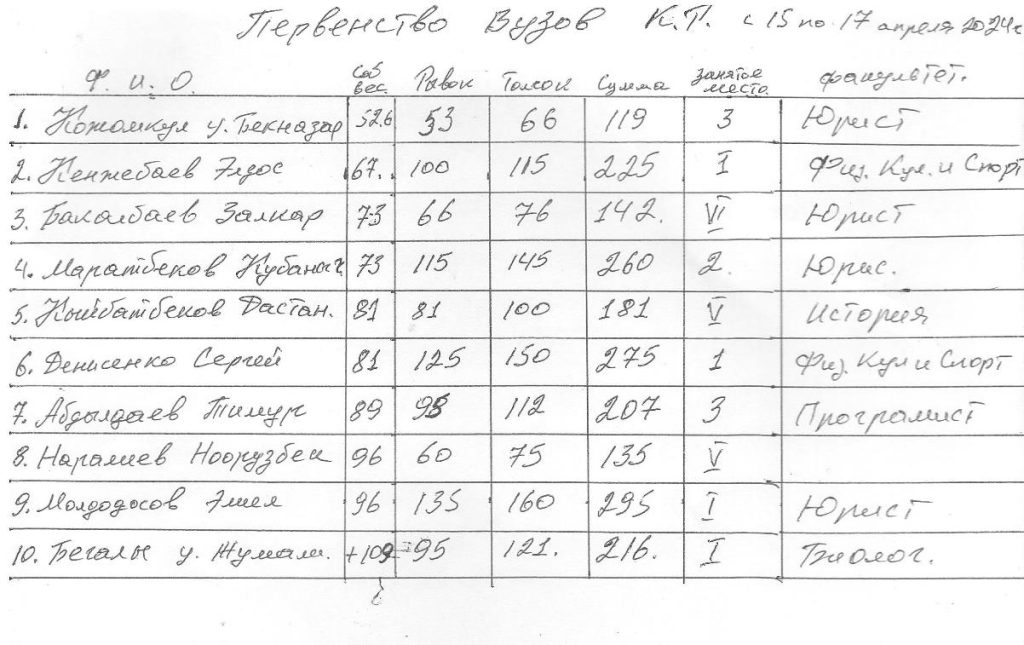 Первенство Вузов К.Р. с 15 по 17 апреля 2024г
Ф. и. О. Соб вес. Рывок Толчок Сумма Занятое место факультет.
1. Кожомкул у. Бекназар 52.6 53 66 119 3 Юрист
2. Кенжебаев Элдос 67. 100 115 225 I Физ. Кул. и Спорт
3. Бакалбаев Залкар 73 66 76 142. VI Юрист
4. Маратбеков Кубаныч 73 115 145 260 2. Юрис.
5. Кыйбатбеков Дастан. 81 81 100 181 V История
6. Денисенко Сергей 81 125 150 275 1 Физ. Кул и Спорт
7. Абдылдаев Тимур 89 95 112 207 3 Програмист
8. Наралиев Ноорузбек 96 60 75 135 V
9. Молдодосов Эмил 96 135 160 295 I Юрист
10. Бегалы у. Жумали. +109 95 121. 216. I Биолог.